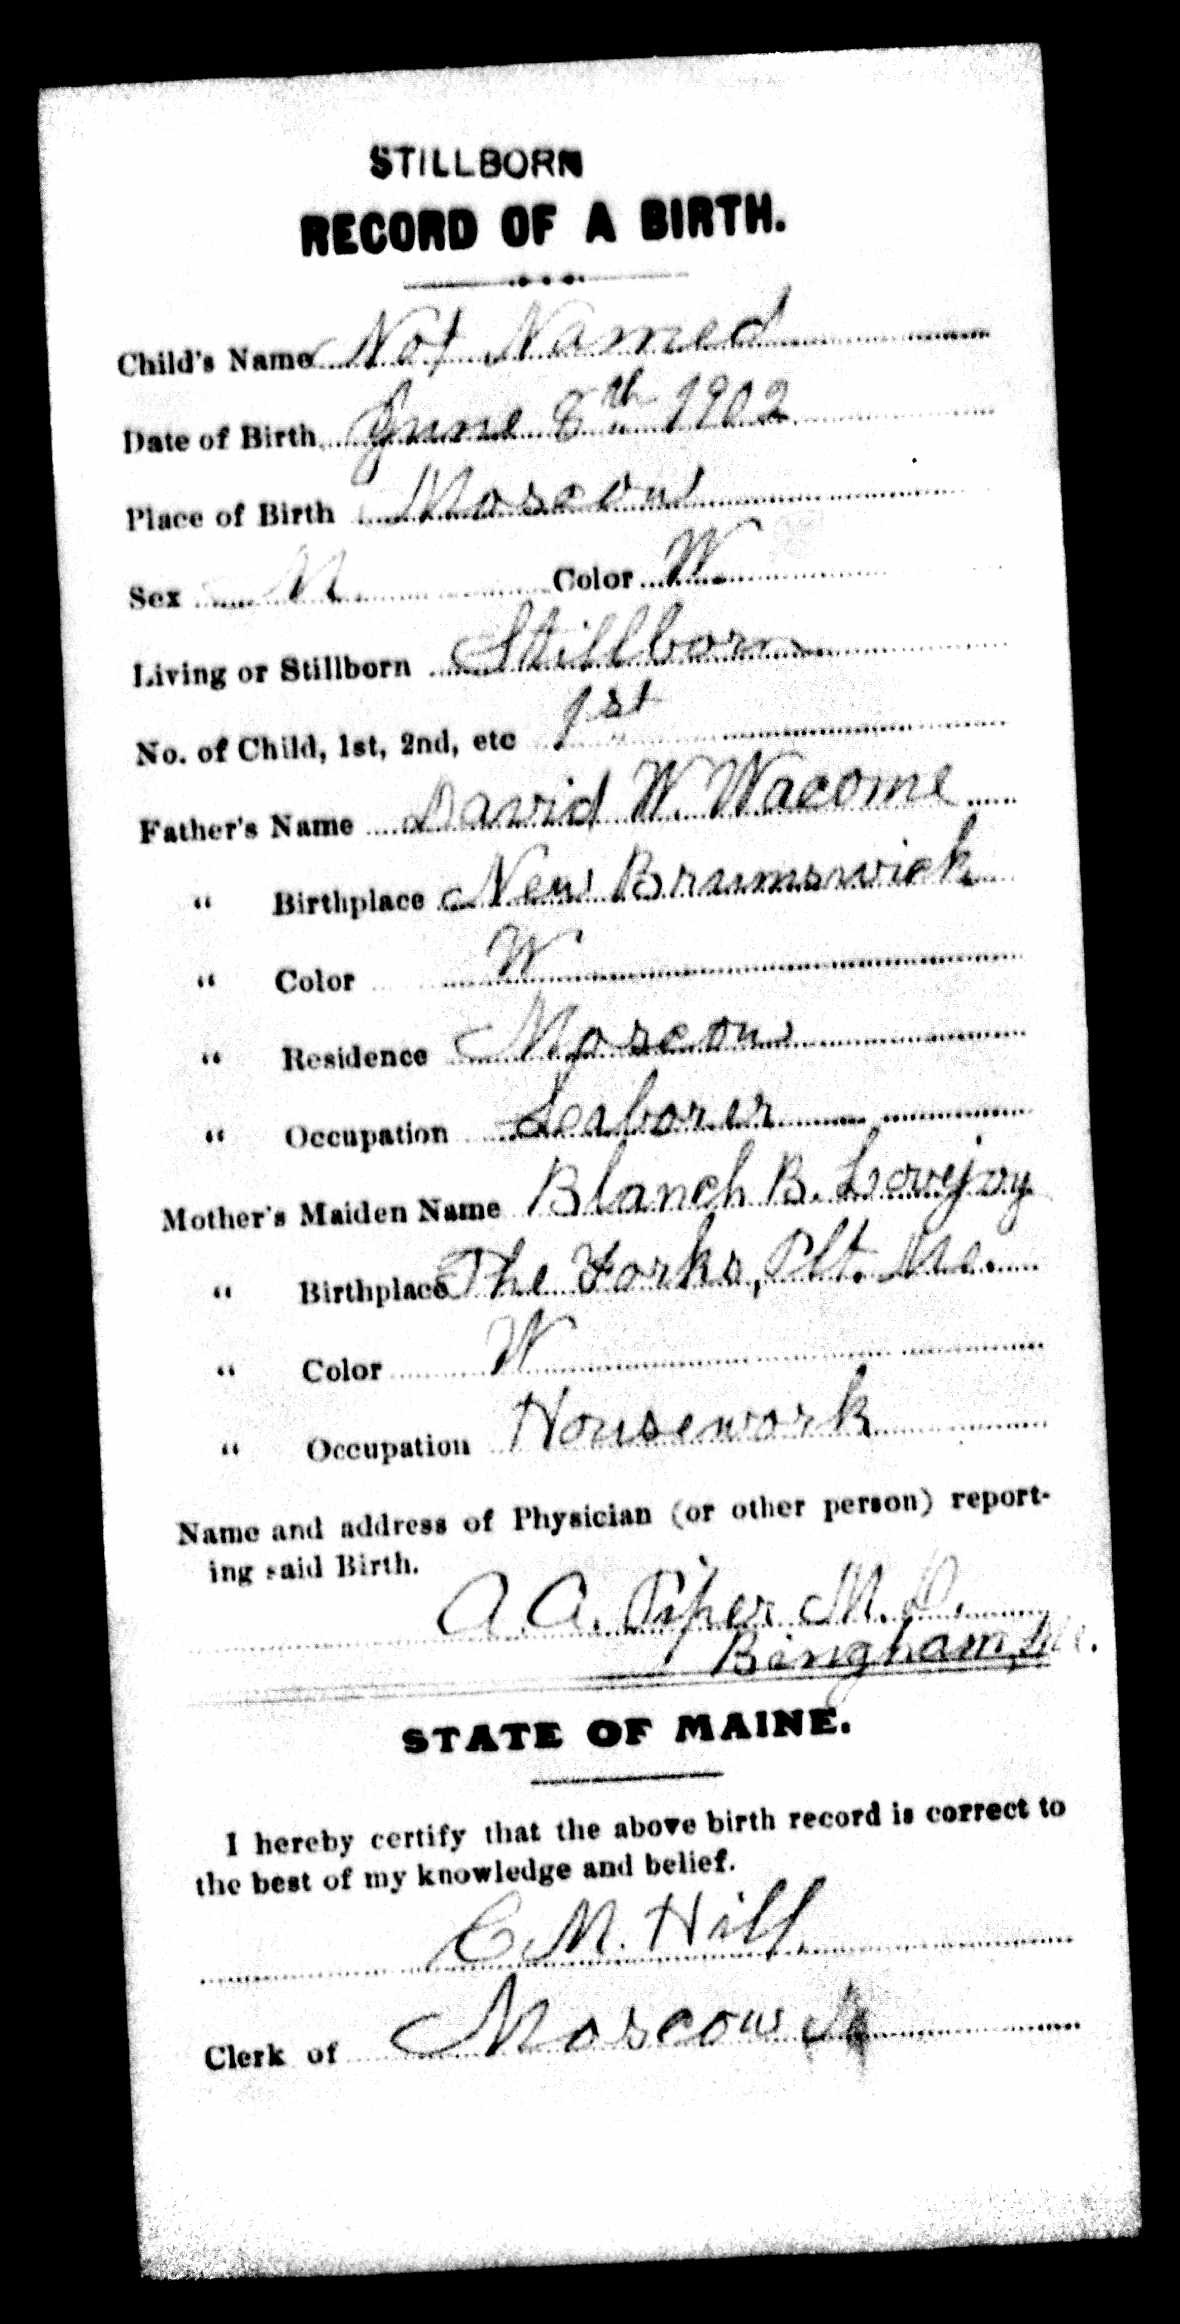 STILLBORN
RECORD OF A BIRTH.
Child's Name Not Named
Date of Birth June 8th 1902
Place of Birth Moscow
Sex M. Color W.
Living or Stillborn Stillborn
No. of Child, 1st, 2nd, etc 1st
Father's Name David W. Wacome
" Birthplace New Brumswick
" Color W
" Residence Moscow
" Occupation Laborer
Mother's Maiden Name Blanch B. Lovejoy
" Birthplace The Forks, Plt. Me.
" Color W
" Occupation Housework
Name and address of Physician (or other person) report-
ing said Birth.
A. A. Piper M. D.
Bingham, Me.
STATE OF MAINE.
I hereby certify that the above birth record is correct to
the best of my knowledge and belief.
C. M. Hill
Clerk of Moscow